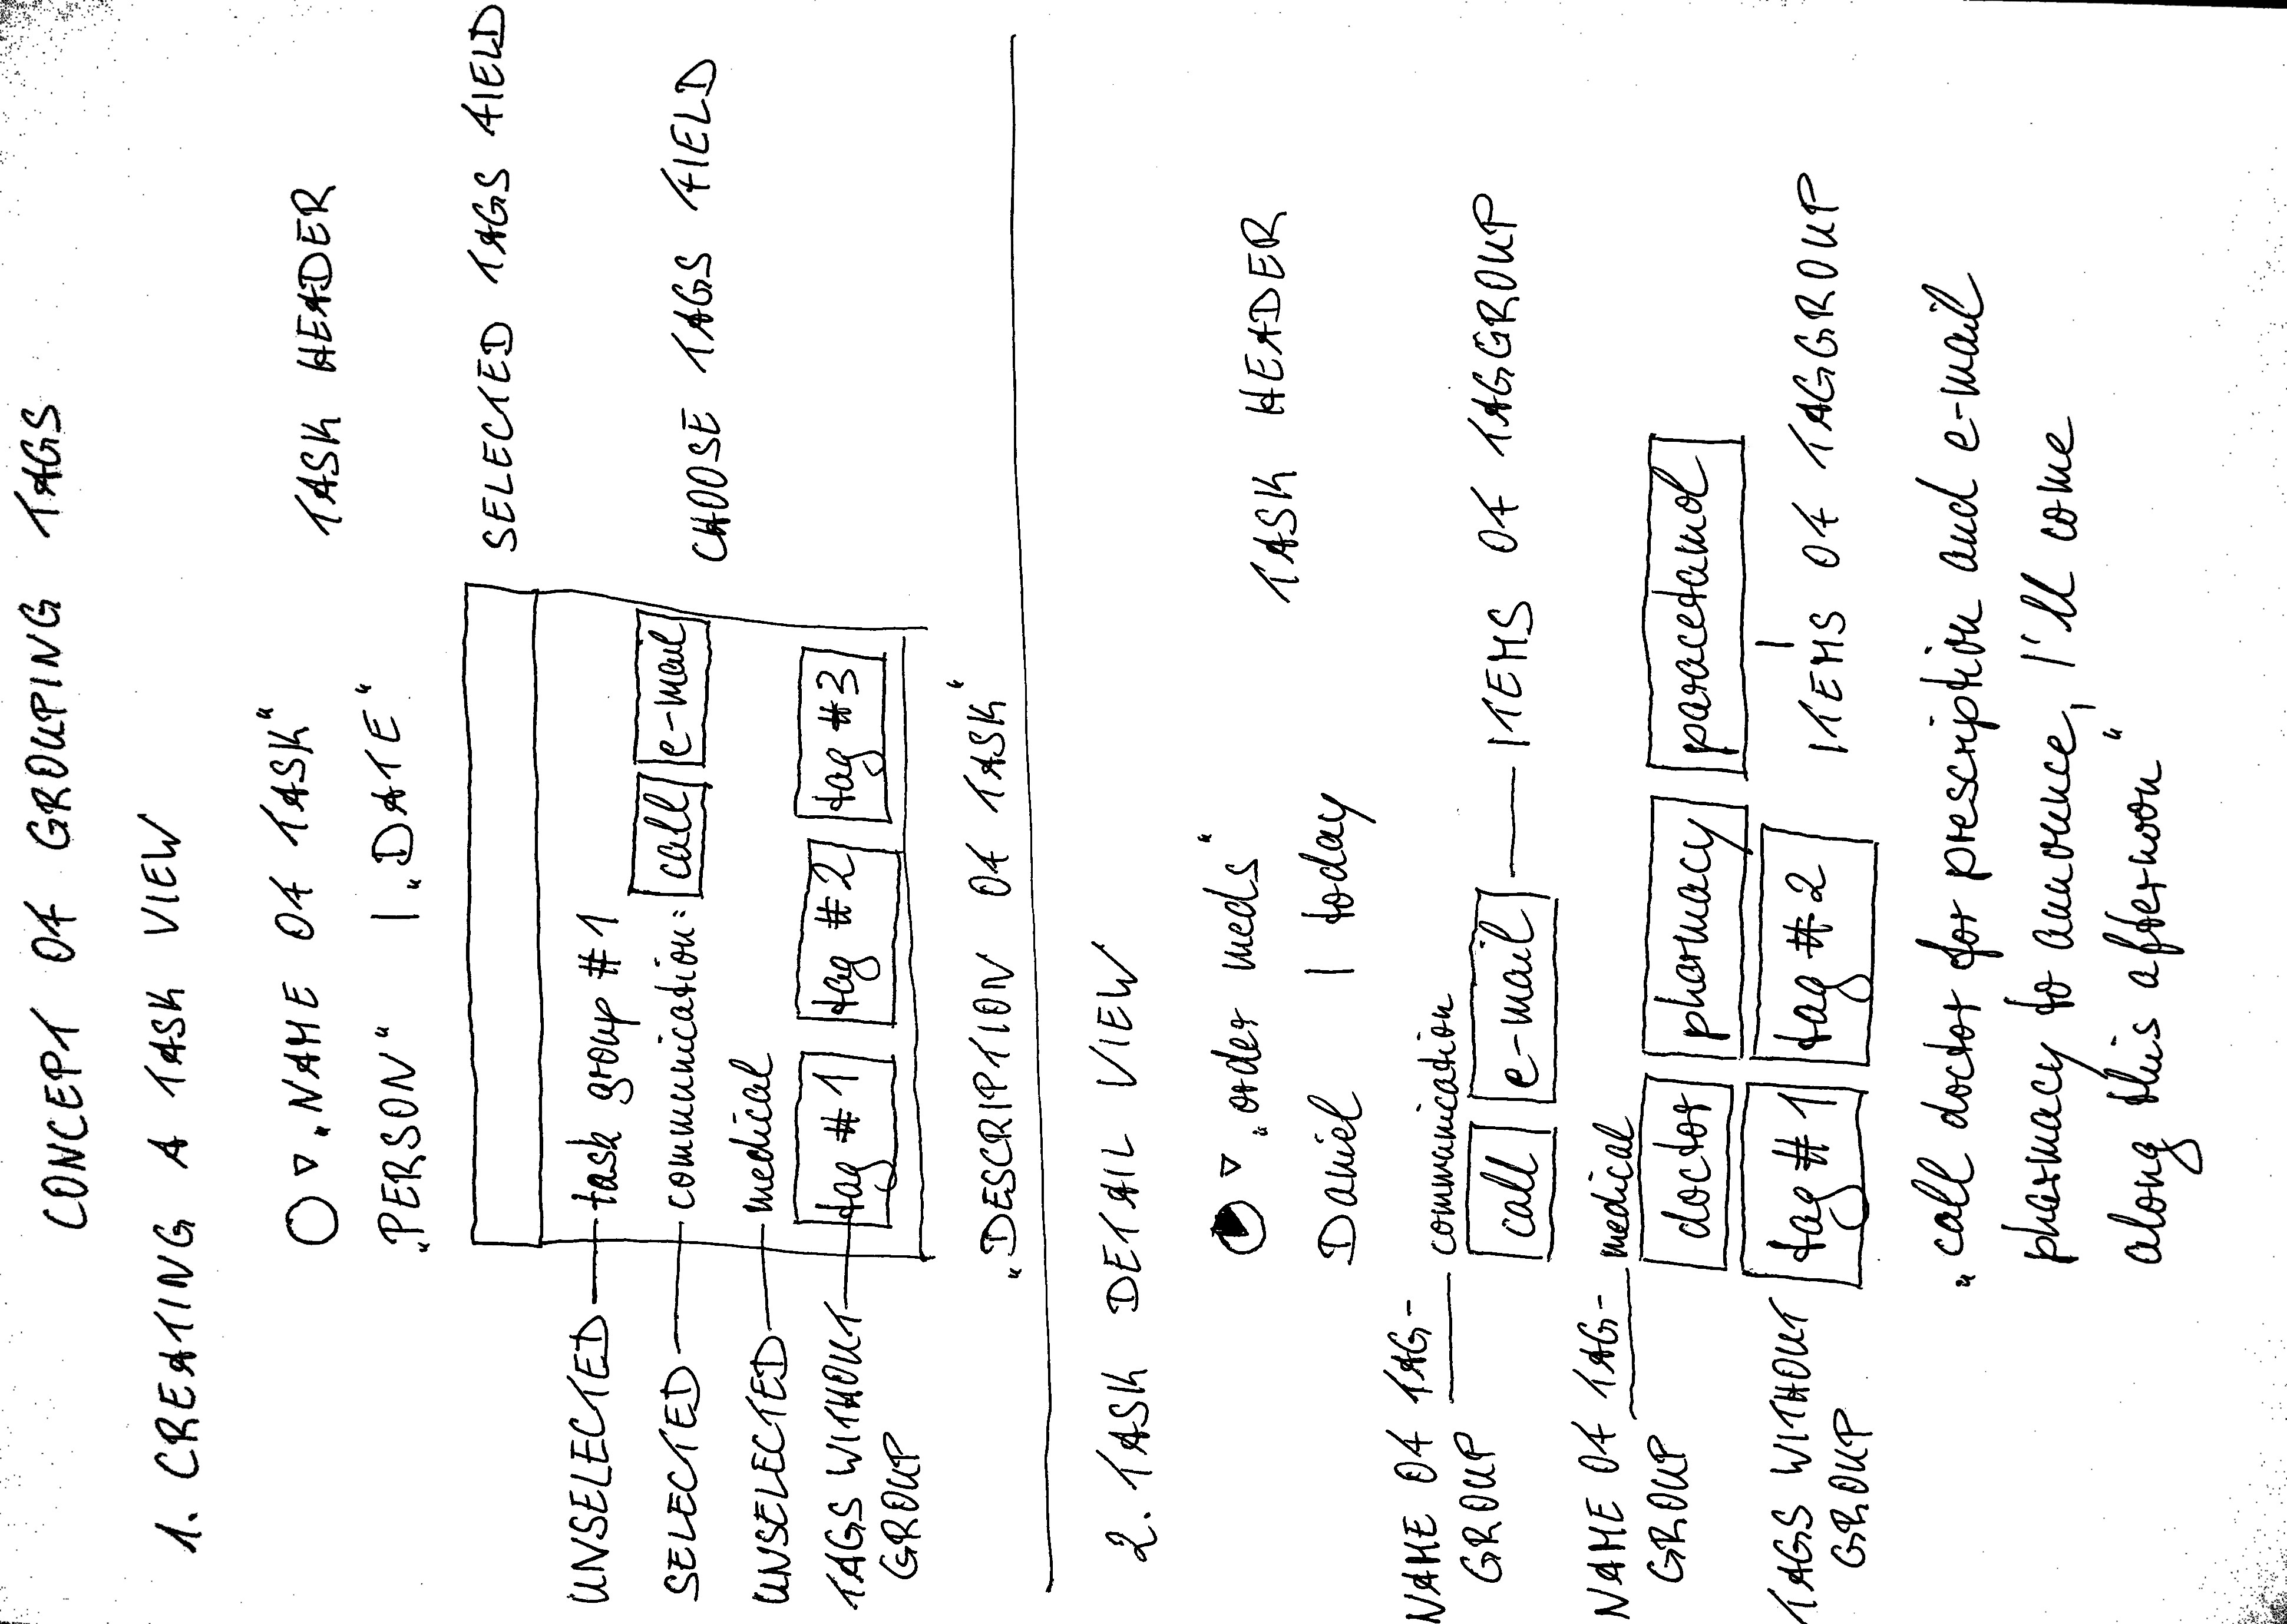 CONCEPT OF GROUPING TAGS
1. CREATING A TASK VIEW
„NAME OF TASK“ TASK HEADER
„PERSON“ | „DATE“
SELECTED TAGS FIELD
UNSELECTED task group #1
SELECTED communication: call e-mail CHOOSE TAGS FIELD
UNSELECTED medical
TAGS WITHOUT GROUP tag #1 tag #2 tag #3
„DESCRIPTION OF TASK“
2. TASK DETAIL VIEW
„order meds“ TASK HEADER
Daniel | today
NAME OF TAG- communication
GROUP call e-mail ITEMS OF TAGGROUP
NAME OF TAG- medical
GROUP doctor pharmacy paracetamol
TAGS WITHOUT tag #1 tag #2 ITEMS OF TAGGROUP
GROUP
„call doctor for prescription and e-mail
pharmacy to announce, I'll come
along this afternoon“